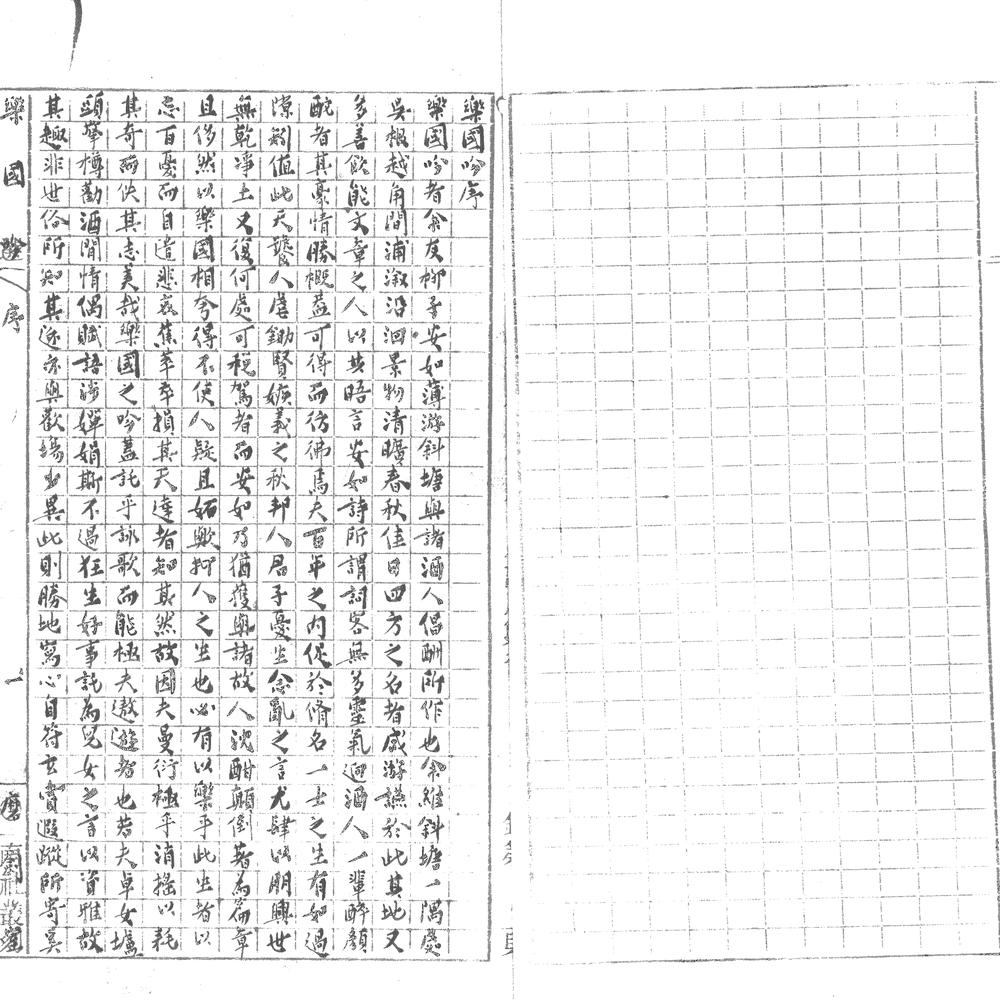 樂國吟序
樂國吟者余友柳子安如薄游斜塘與諸酒人倡酬所作也余維斜塘一隅處
吳根越角間浦漵沿洄景物清曠春秋佳日四方之名者咸游讌於此其地又
多善飲能文章之人以其晤言安如詩所謂詞客無多靈氣迥酒人一輩醉顏
酡者其豪情勝概蓋可得而彷彿焉夫百年之內促於脩名一士之生有如過
隙矧值此天讒人虐鋤賢嫉義之秋邦人君子憂生念亂之言尤肆以朋興世
無乾淨土又復何處可稅駕者而安如乃猶獲與諸故人沈酣顛倒著為篇章
且侈然以樂國相夸得不使人疑且妬歟抑人之生也必有以樂乎此生者以
忘百憂而自遣悲哀蕉萃卒損其天達者知其然故因夫曼衍極乎消搖以耗
其奇而佚其志美哉樂國之吟蓋託乎詠歌而能極夫遨遊者也若夫卓女壚
頭擎樽勸酒閒情偶賦語涉嬋娟斯不過狂生好事託為兒女之言以資雅故
其趣非世俗所知其迹亦與歡場異此則勝地寫心自符玄賞遐蹤所寄奚
樂國吟 序
一